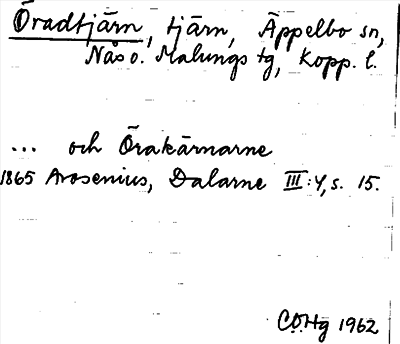 Öradtjärn, tjärn, Äppelbo sn,
Nås o. Malungs tg, Kopp. l.
... och Örakärnarne
1865 Arosenius, Dalarne III:4, s. 15.
COHg 1962